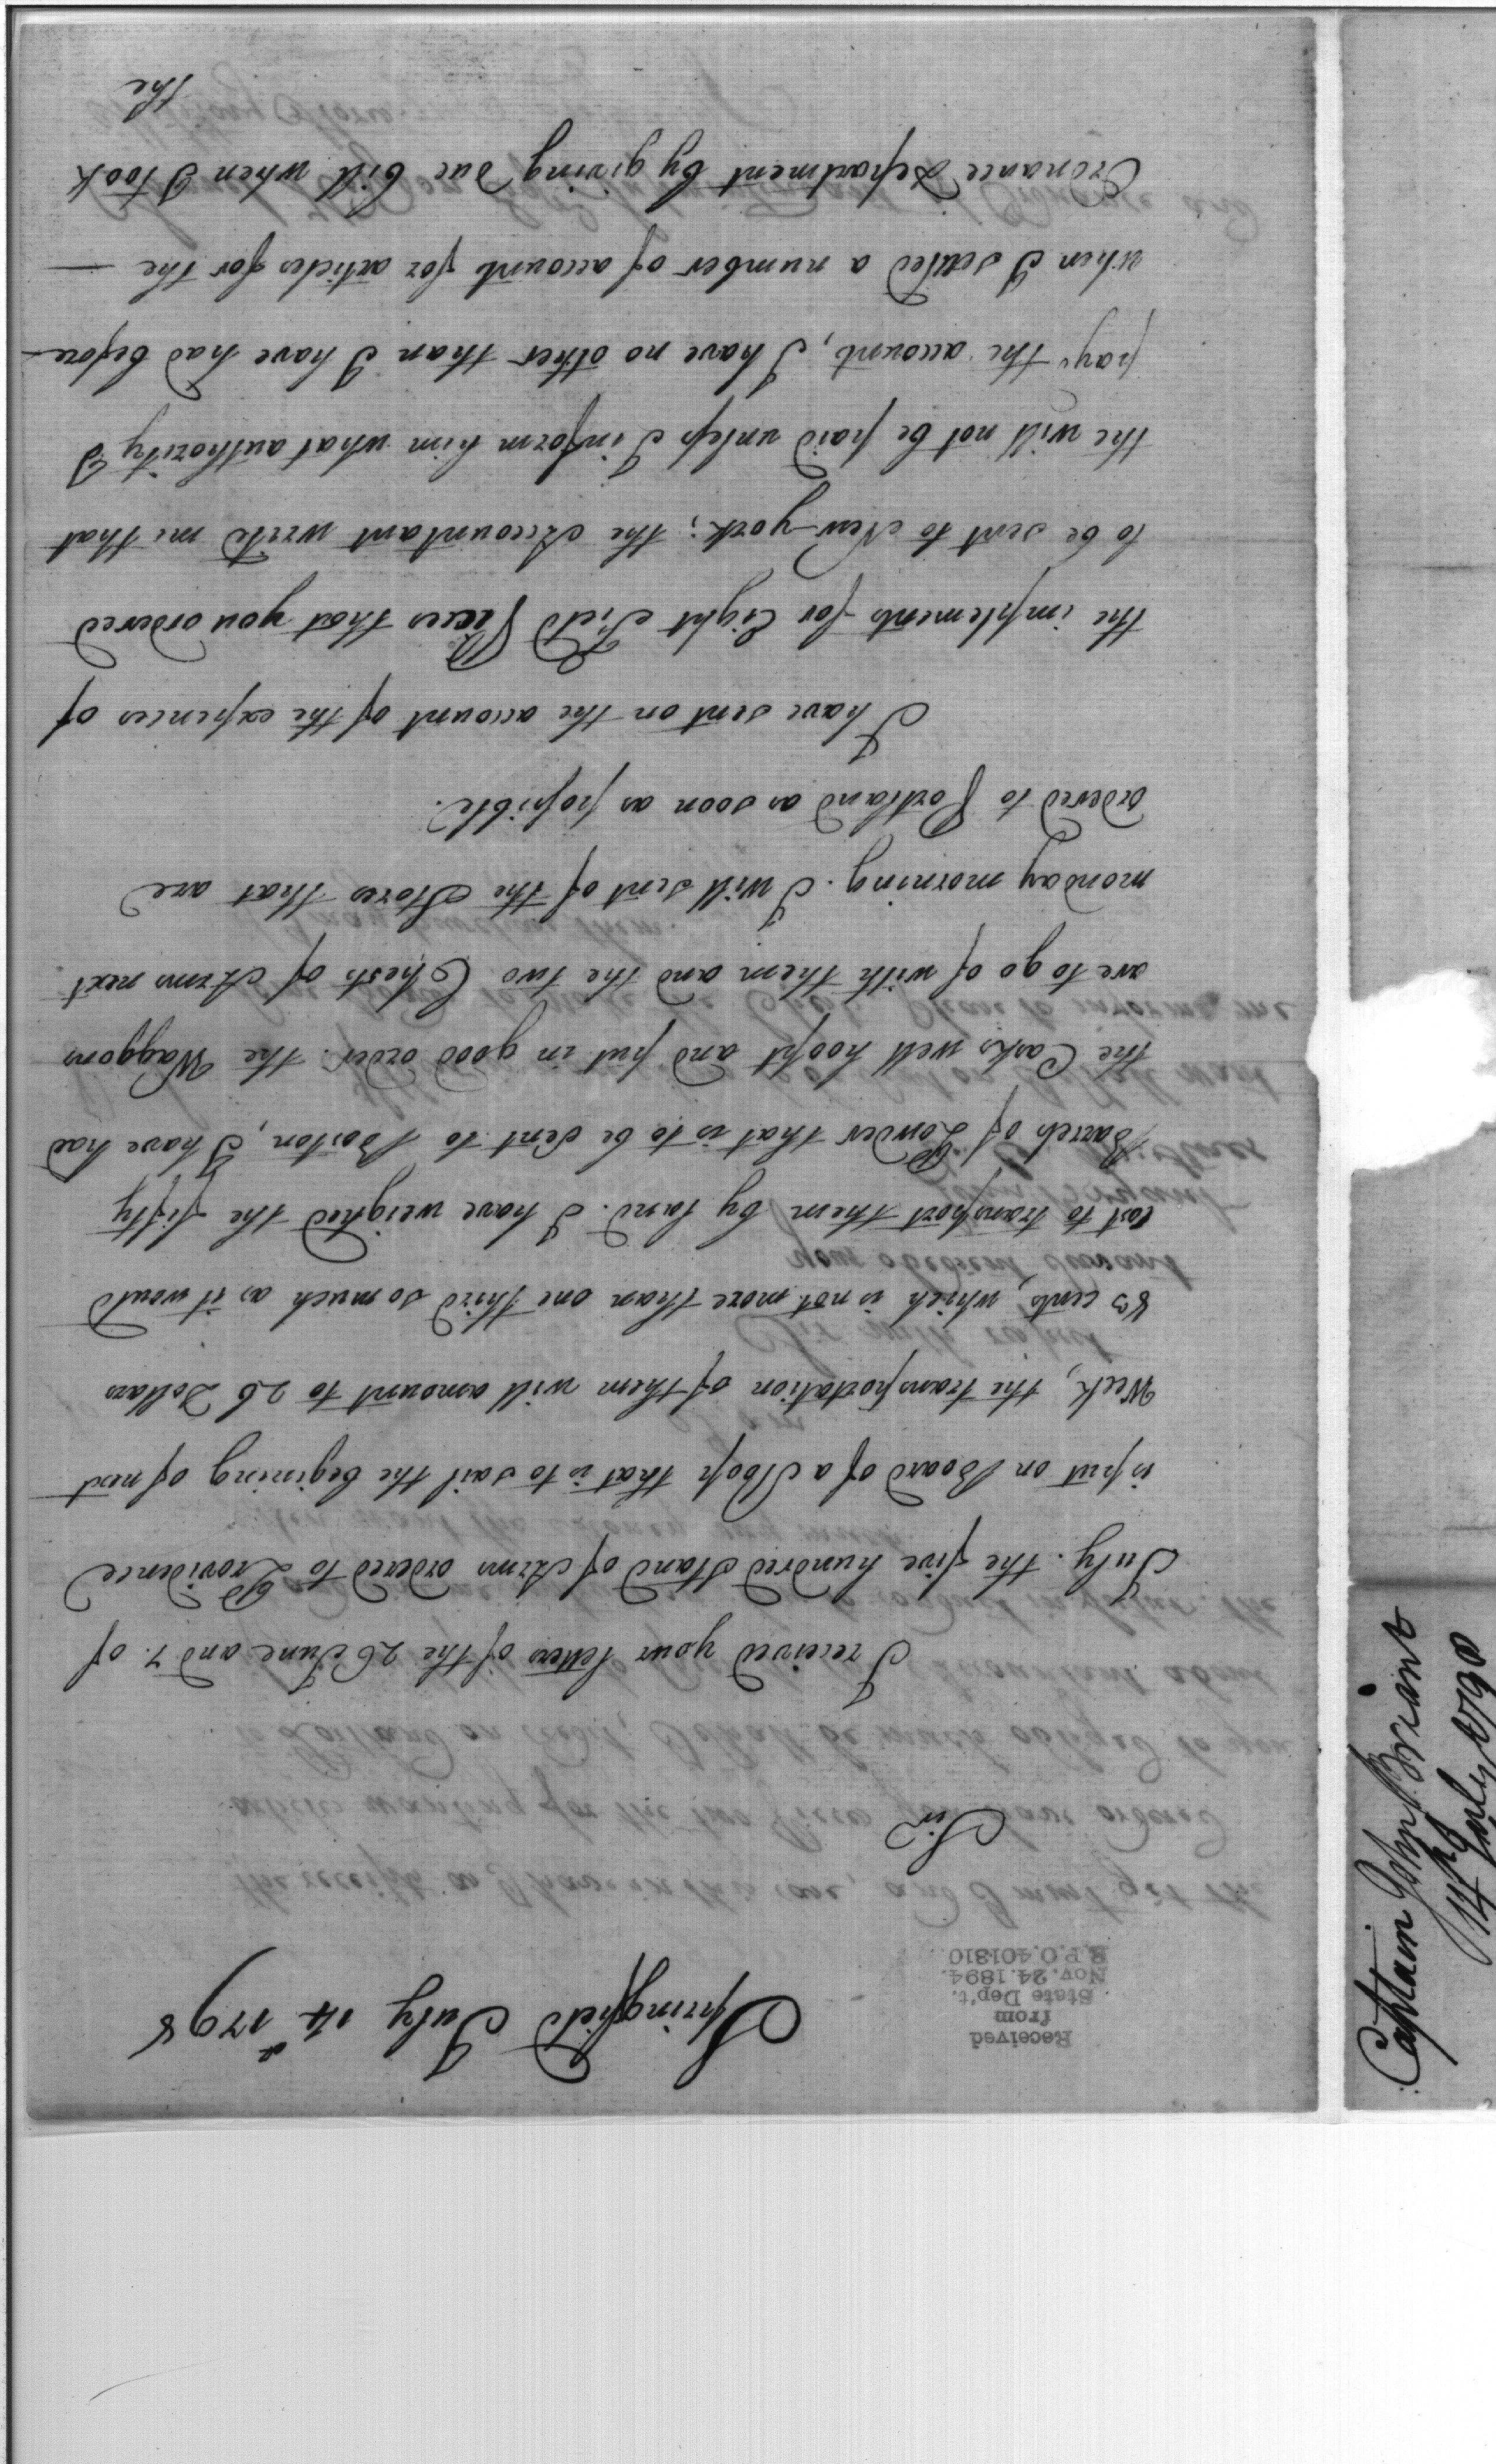 Springfield July 14th 1798
Received
from
State Dep't.
Nov. 24. 1894.
R.P.O. 401310
Sir
I received your letters of the 26 June and 7. of
July. the five hundred Stand of Arms ordered to Providence
is put on Board of a Sloop that is to sail the begining of next
Week, the transportation of them will amount to 26 Dollars
83 cents, which is not more than one third so much as it would
cost to transport them by land. I have weighed the fifty
Barrels of Powder that is to be sent to Boston, I have had
the Casks well hoopt and put in good order. the Waggons
are to go of with them and the two Chests of Arms next
monday morning. I will sent of the Stores that are
ordered to Portland as soon as possible.
I have sent on the account of the expences of
the implements for Eight Field Pieces that you ordered
to be sent to New-york; the Accountant writes me that
the will not be paid unless I inform him what authority I
pay the account, I have no other than I have had before
when I settled a number of accounts for articles for the —
Ordnance Department by giving due bill when I took
the
Captain John Briant
14th July 1798